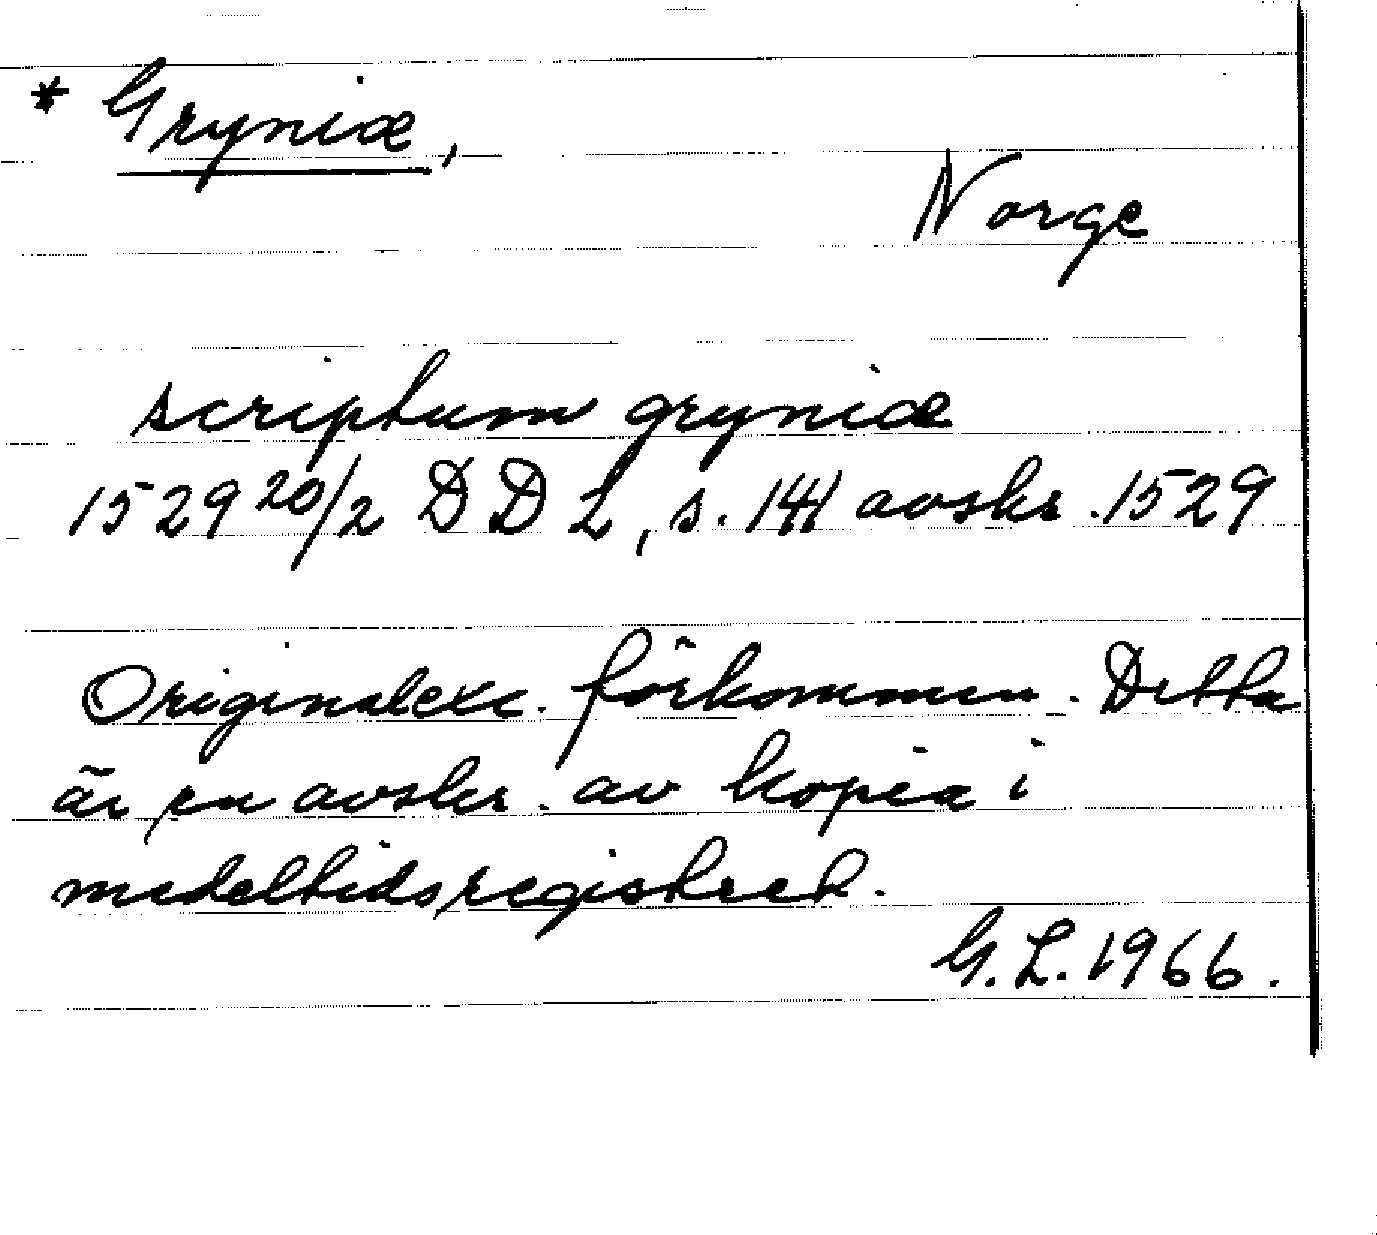 * Gryniæ,
Norge
scriptum gryniæ
1529 20/2 DD L, s. 141 avskr. 1529
Originalexc. förkommen. Detta
är en avskr. av kopia i
medeltidsregistret.
G. L. 1966.